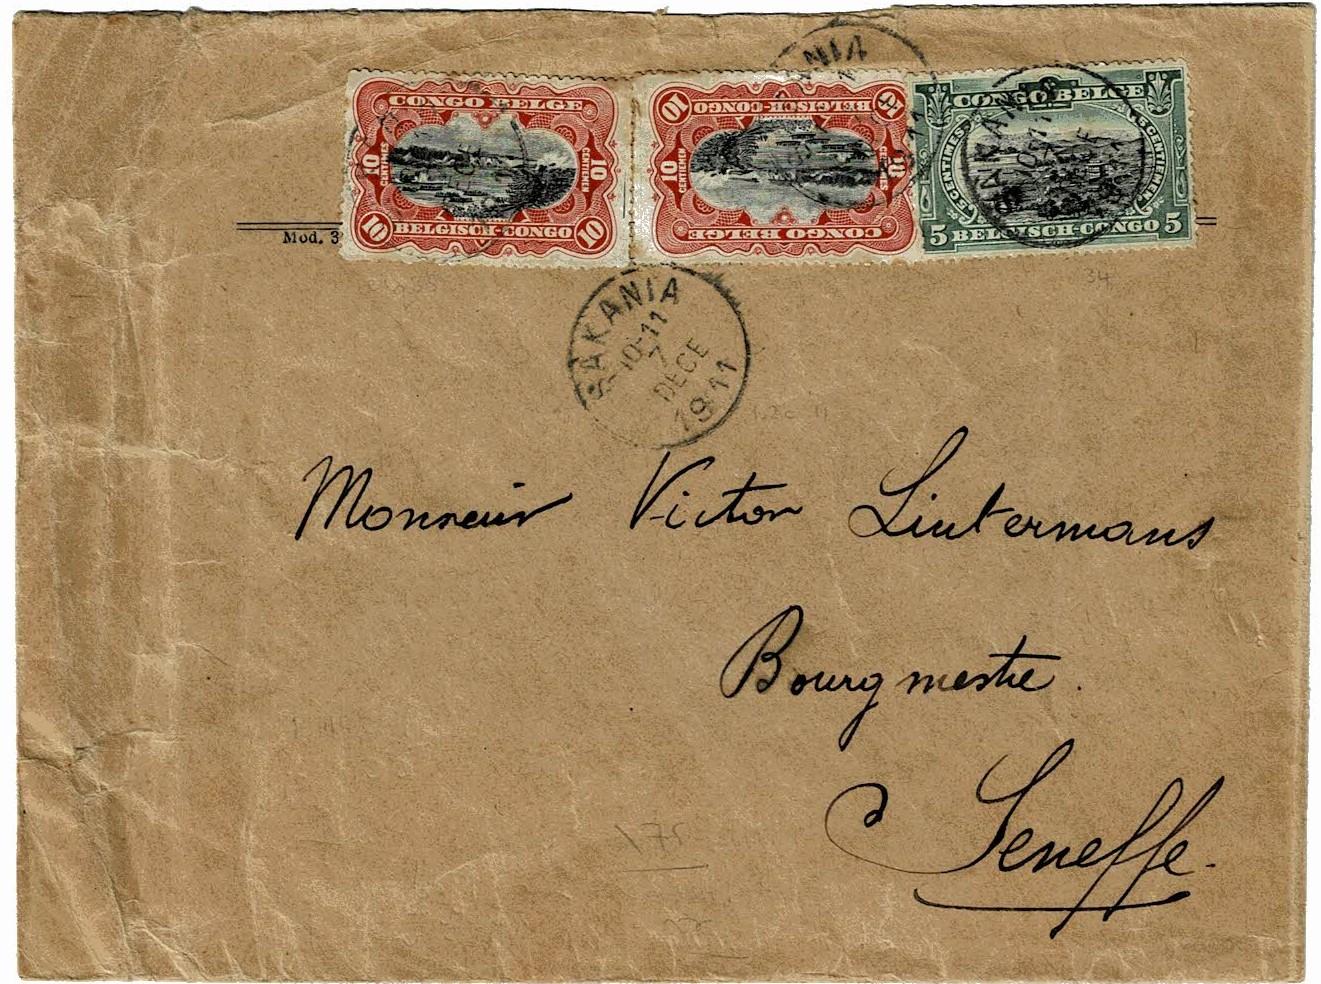 CONGO BELGE
10 CENTIMES
10 CENTIEMEN
10 BELGISCH-CONGO 10
CONGO BELGE
10 CENTIMES
10 CENTIEMEN
10 BELGISCH-CONGO 10
CONGO BELGE
5 CENTIMES
5 CENTIEMEN
5 BELGISCH-CONGO 5
Mod. 3
34
SAKANIA
10-11
7
DECE
1911
Monsieur Victor Lintermans
Bourgmestre.
Seneffe.
175